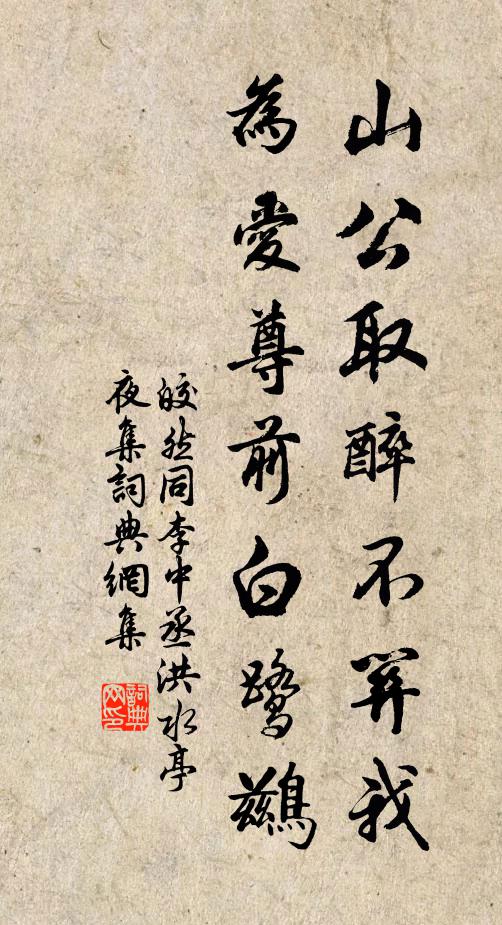 山公取醉不關我
為愛尊前白鷺鷀
皎然同李中丞洪水亭
夜集詞典網集
詞典
网印